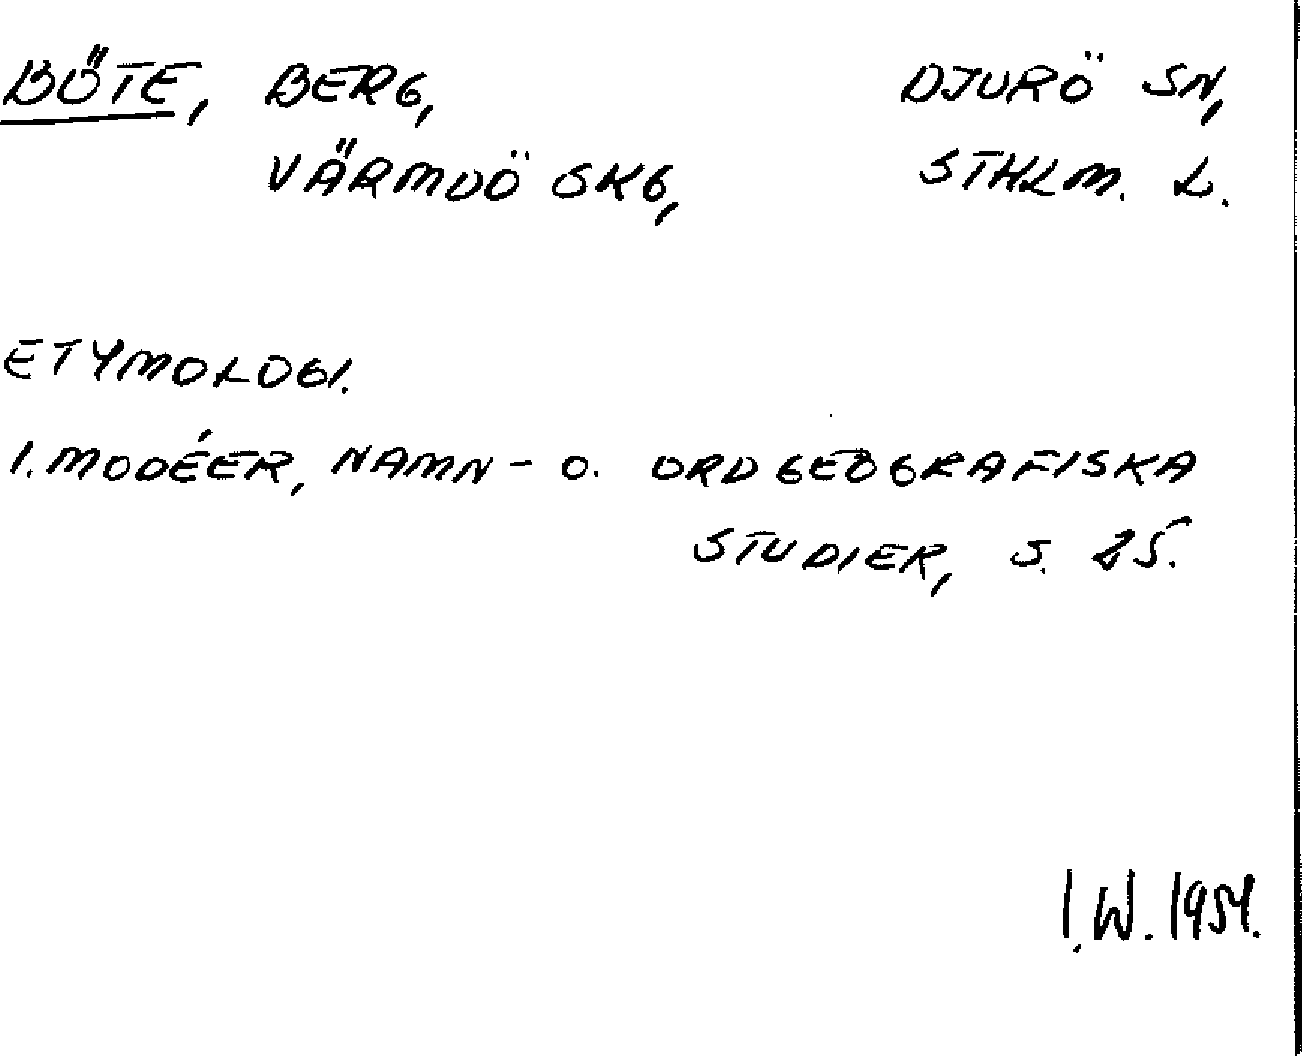 BÖTE, BERG, DJURÖ SN,
VÄRMDÖ SKG, STHLM. L.
ETYMOLOGI.
I. MODÉER, NAMN- O. ORDGEOGRAFISKA
STUDIER, S.
I.W. 1954.